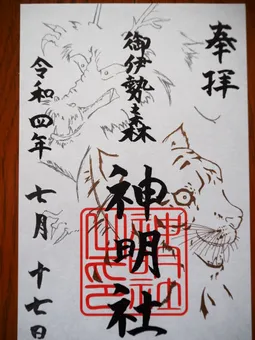 奉拝
御伊勢森
神明社
令和四年
七月十七日